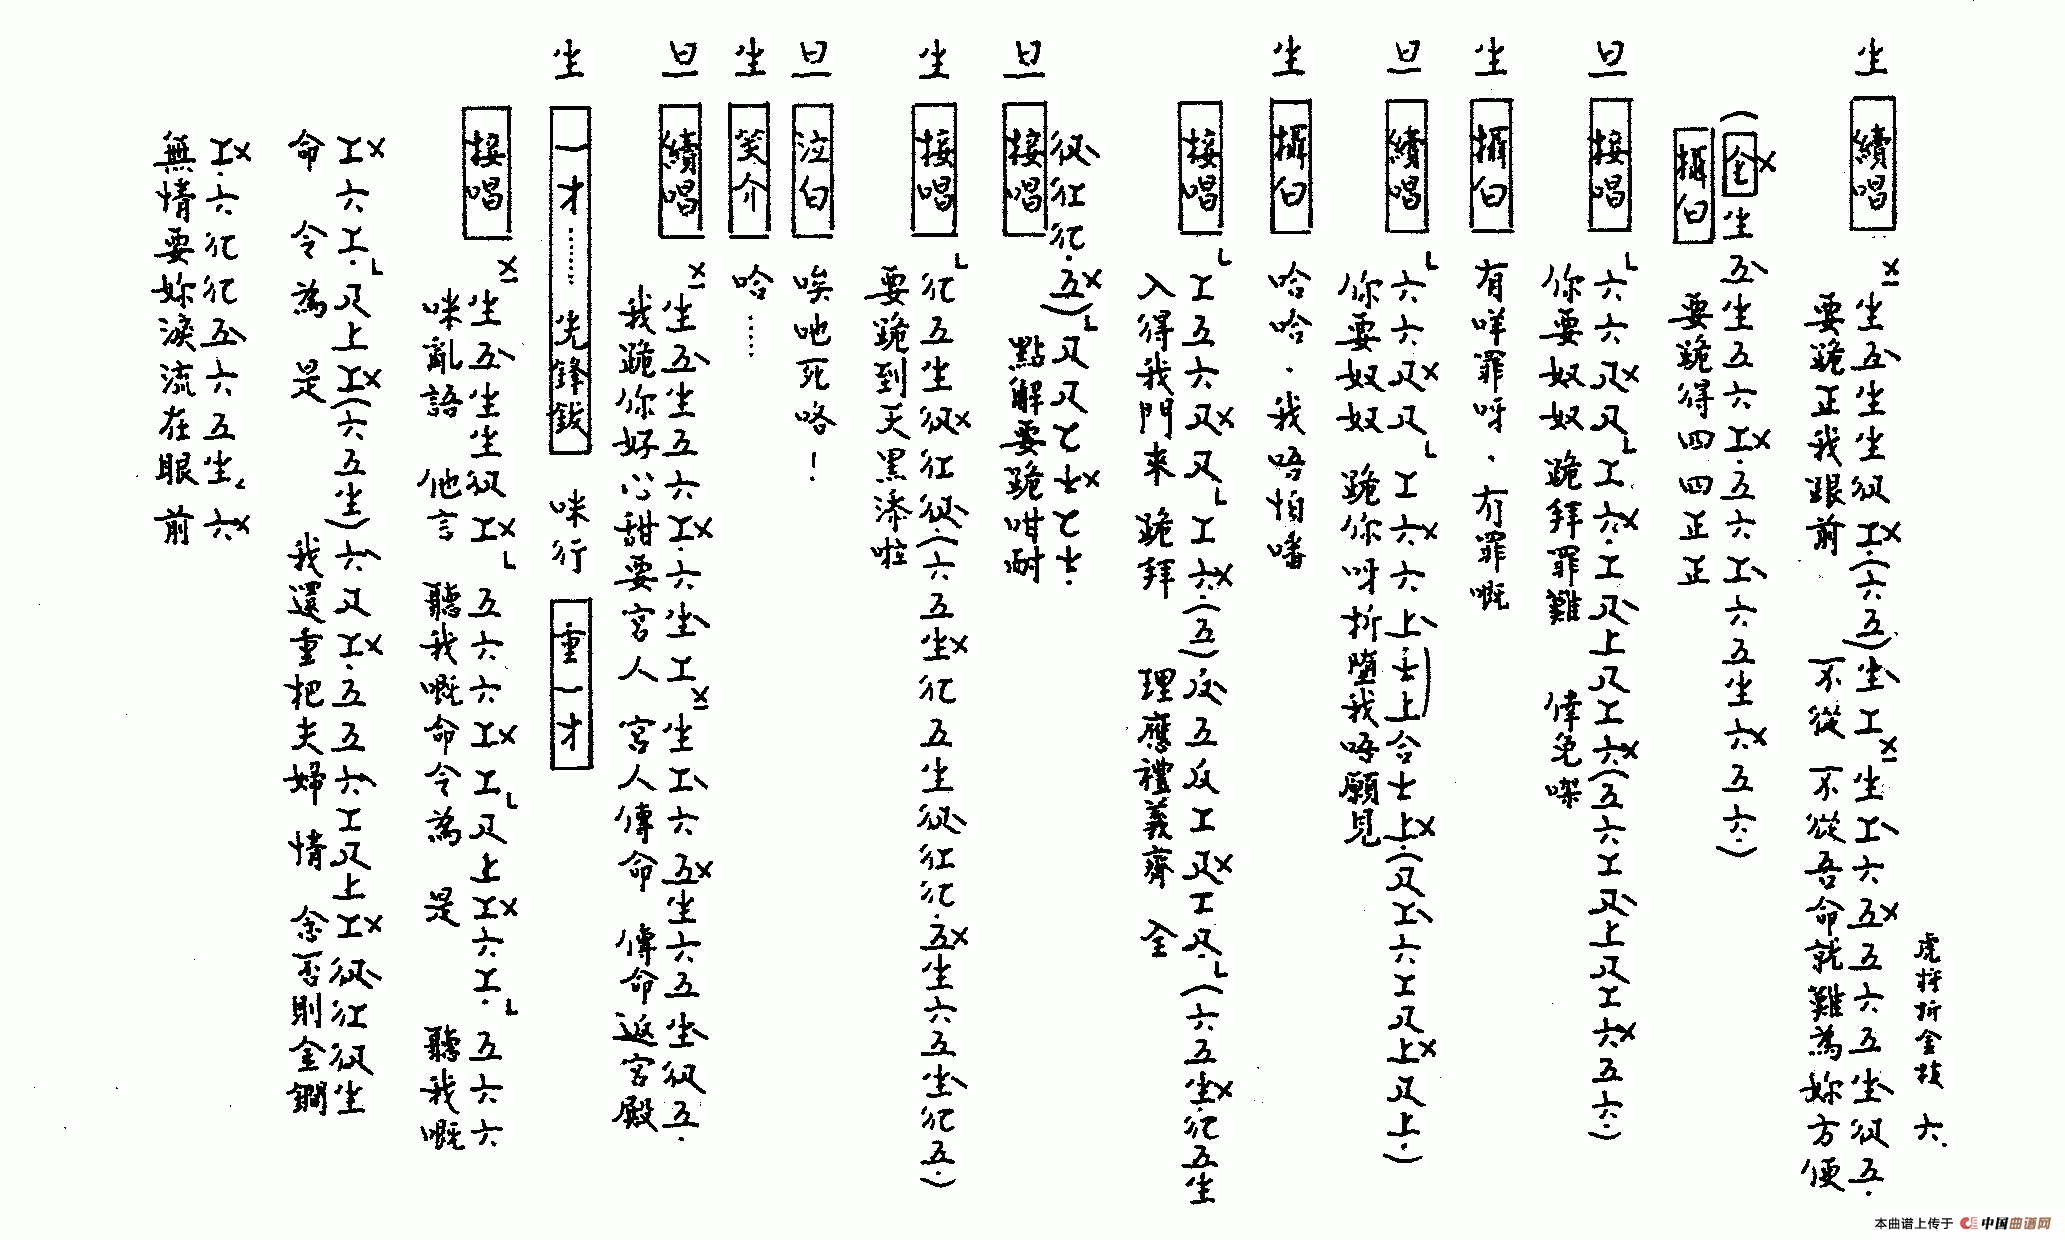 虎將折金枝 六.
生 續唱 生五生生伬工(六五)生工 生工六五五六五生伬五.
要跪正我跟前 不從 不從吾命就難為妳方便
(仝 生五生五六工.五六工六五生六五六.)
攝白 要跪得四四正正
旦 接唱 六六尺尺工六.工尺上尺工六(五六工尺上尺工六五六.)
你要奴奴 跪拜罪難 倖免㗎
生 攝白 有咩罪呀.冇罪嘅
旦 續唱 六六尺尺工六六上士上合士上.(尺工六工尺上尺上.)
你要奴奴 跪你呀折墮我唔願見
生 攝白 哈哈.我唔怕噃
接唱 工五六尺尺工六.(五)反五反工尺工尺.(六五生.亿五生
入得我門來 跪拜 理應禮義齊全
伬仜亿.五)尺尺乙士乙士.
旦 接唱 點解要跪咁耐
生 接唱 亿五生伬仜伬(六五生亿五生伬仜亿.五生六五生亿五.)
要跪到天黑添啦
旦 泣白 唉吔死咯！
生 笑介 哈……
旦 續唱 生五生五六工.六生工 生工六五生六五生伬五.
我跪你好心甜要宮人 宮人傳命 傳命返宮殿
生 一才……先鋒鈸 咪行 重一才
接唱 生五生生伬工 五六六工工尺上工六工.五六六
咪亂語 他言 聽我嘅命令為 是 聽我嘅
工六工.尺上工(六五生)六尺工.五五六工尺上工伬仜伬生
命令為是 我還重把夫婦 情 念 否則金鐧
工.六亿亿五六五生六
無情要妳淚流在眼前
本曲谱上传于 中国曲谱网